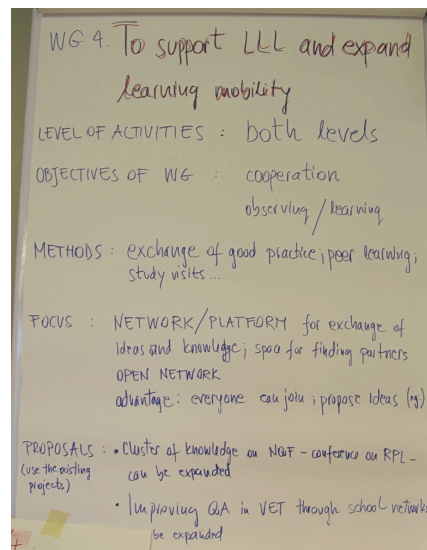 WG 4. To support LLL and expand
learning mobility
LEVEL OF ACTIVITIES : both levels
OBJECTIVES OF WG : cooperation
observing / learning
METHODS : exchange of good practice; peer learning;
study visits...
FOCUS : NETWORK/PLATFORM for exchange of
ideas and knowledge; space for finding partners
OPEN NETWORK
advantage: everyone can join; propose ideas (eg:)
PROPOSALS : • Cluster of knowledge on NQF - conference on RPL -
(use the existing can be expanded
projects)
• Improving QA in VET through school networks
be expanded